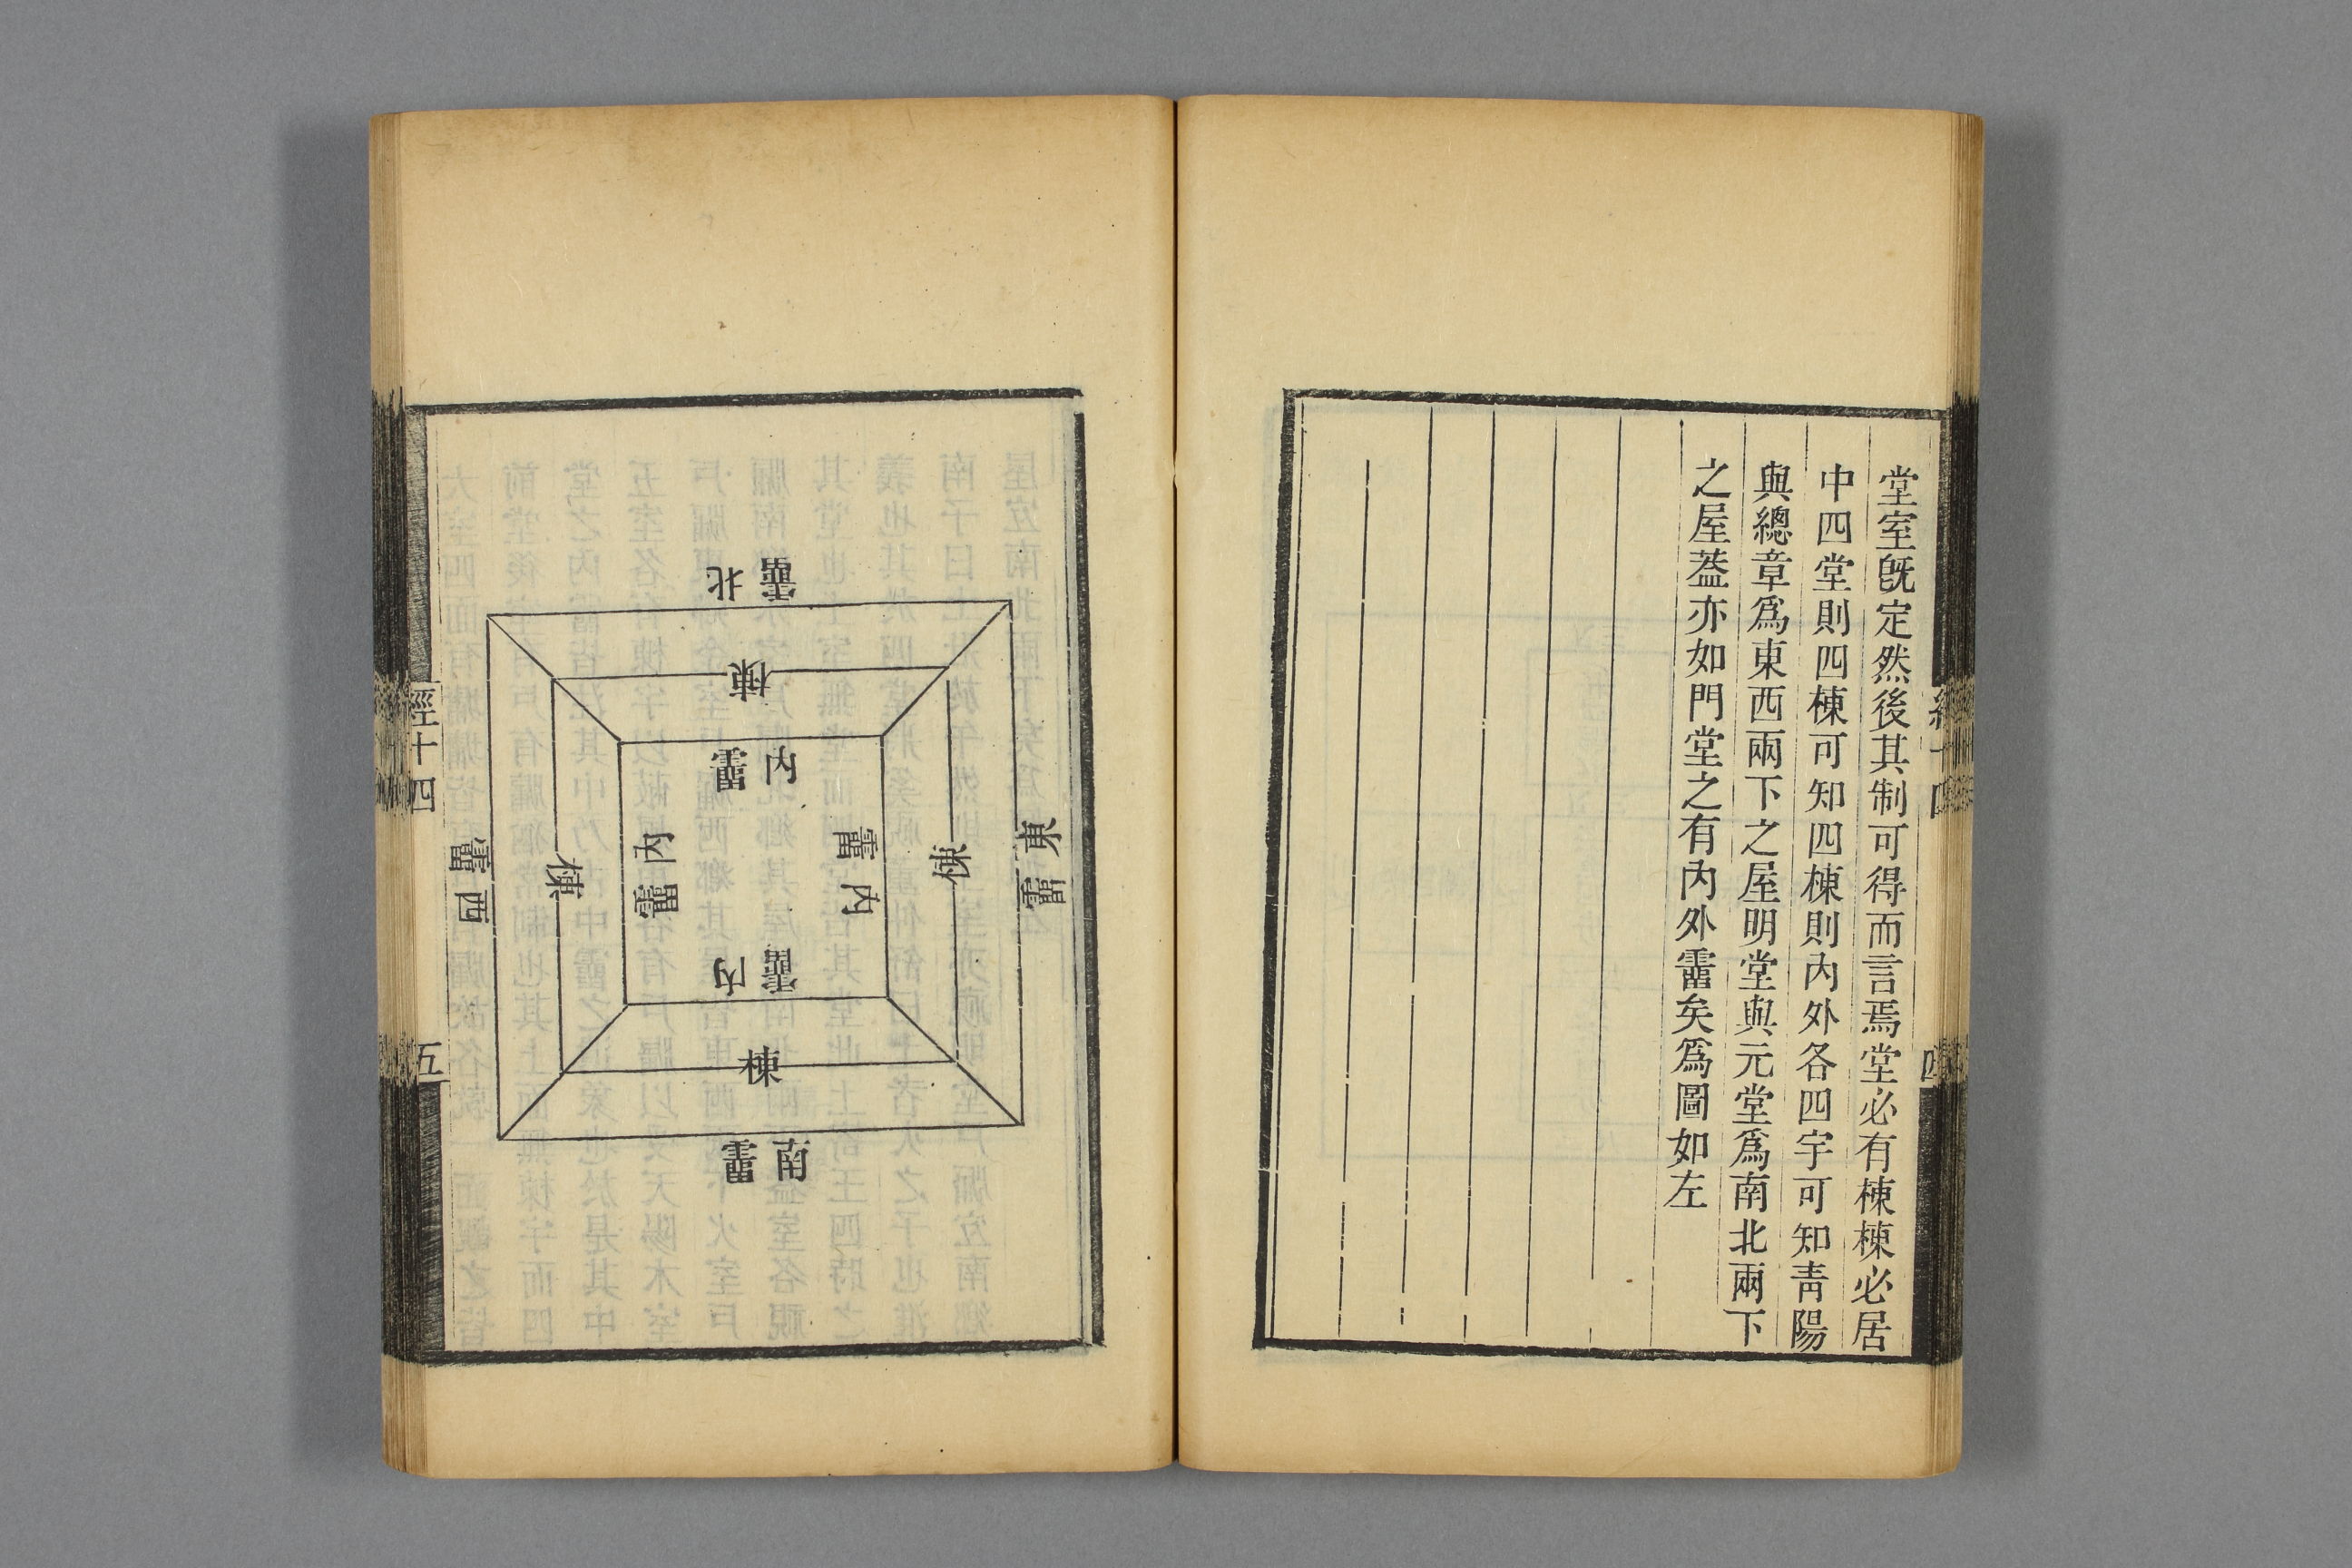 堂室旣定然後其制可得而言焉堂必有棟棟必居
中四堂則四棟可知四棟則內外各四宇可知靑陽
與總章爲東西兩下之屋明堂與元堂爲南北兩下
之屋葢亦如門堂之有內外霤矣爲圖如左
四
北霤
棟
內霤
東霤
棟
內霤
內霤
棟
西霤
內霤
棟
南霤
經十四
五